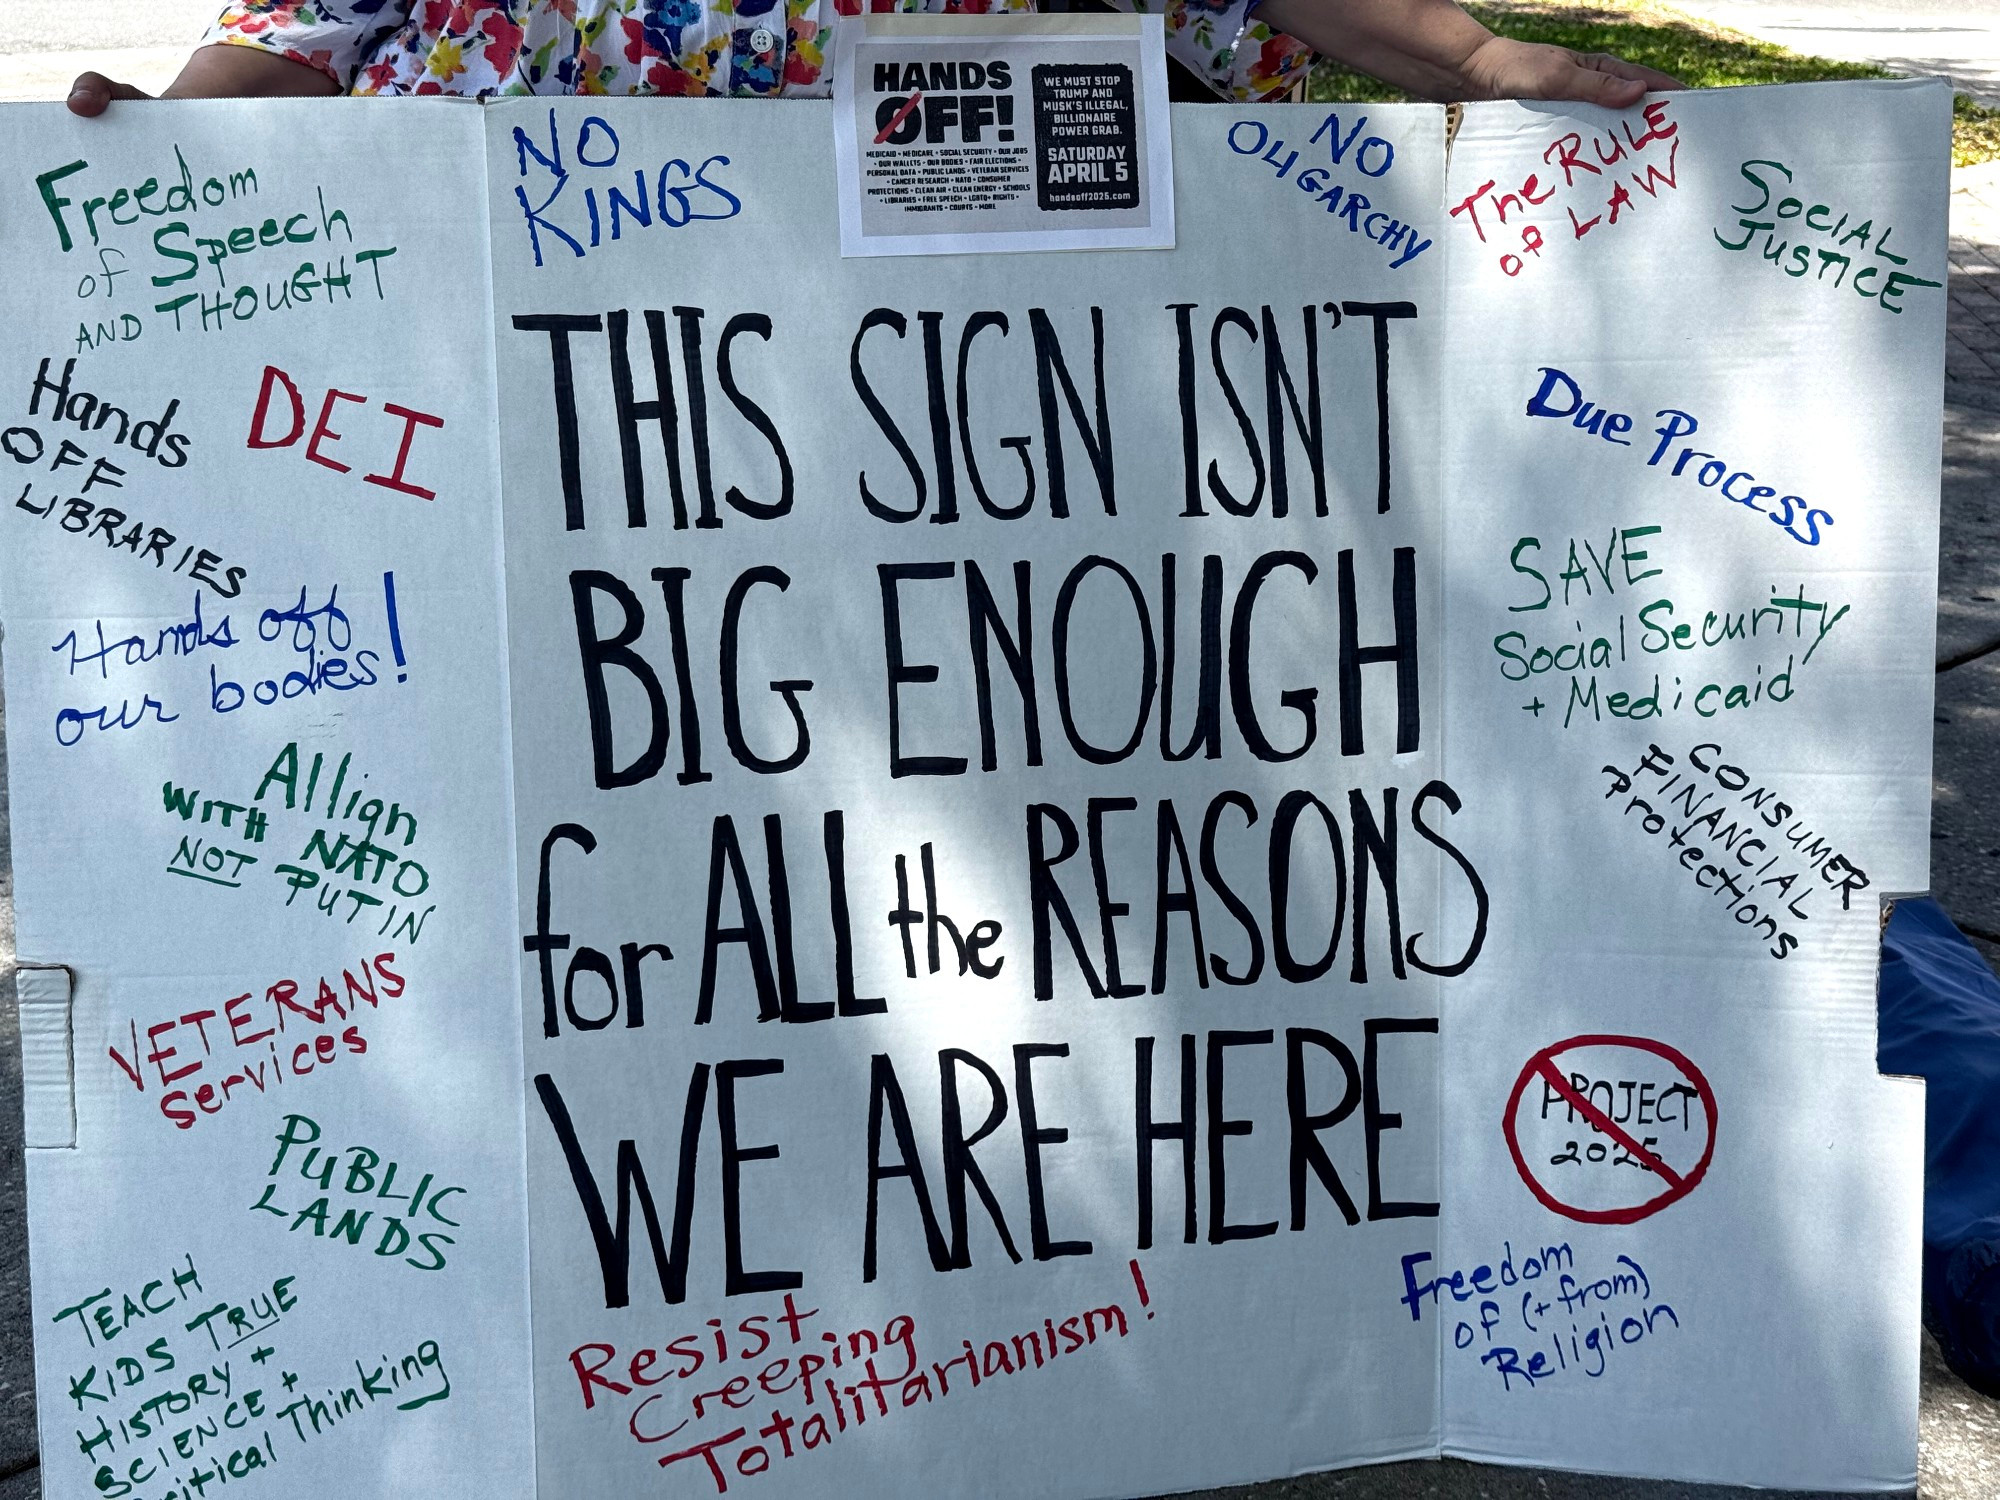 Freedom
of Speech
AND THOUGHT
Hands
OFF
LIBRARIES
DEI
Hands off
our bodies!
Allign
WITH NATO
NOT PUTIN
VETERANS
Services
PUBLIC
LANDS
TEACH
KIDS TRUE
HISTORY +
SCIENCE +
Critical Thinking
NO
KINGS
HANDS
OFF!
MEDICAID • MEDICARE • SOCIAL SECURITY • OUR JOBS
• OUR WALLETS • OUR BODIES • FAIR ELECTIONS •
PERSONAL DATA • PUBLIC LANDS • VETERAN SERVICES
• CANCER RESEARCH • NATO • CONSUMER
PROTECTIONS • CLEAN AIR • CLEAN ENERGY • SCHOOLS
• LIBRARIES • FREE SPEECH • LGBTQ+ RIGHTS •
IMMIGRANTS • COURTS • MORE
WE MUST STOP
TRUMP AND
MUSK'S ILLEGAL,
BILLIONAIRE
POWER GRAB.
SATURDAY
APRIL 5
handsoff2025.com
NO
OLIGARCHY
THIS SIGN ISN'T
BIG ENOUGH
for ALL the REASONS
WE ARE HERE
Resist
Creeping
Totalitarianism!
The RULE
of LAW
SOCIAL
JUSTICE
Due Process
SAVE
Social Security
+ Medicaid
CONSUMER
FINANCIAL
Protections
PROJECT
2025
Freedom
of (+ from)
Religion